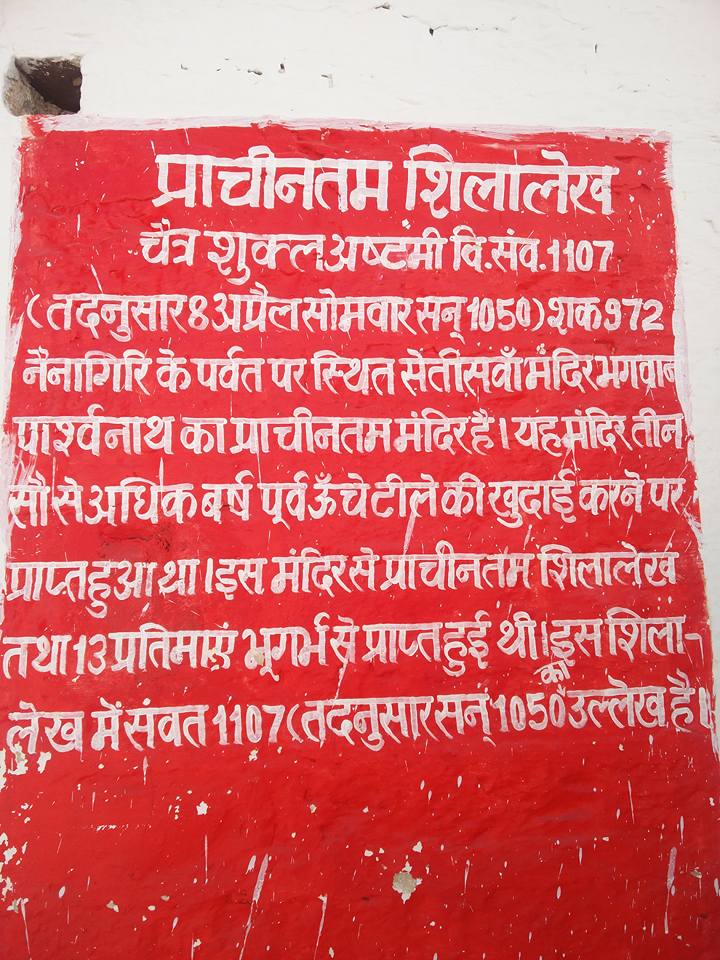 प्राचीनतम शिलालेख
चैत्र शुक्ल अष्टमी वि.संव.1107
(तदनुसार 8 अप्रैल सोमवार सन् 1050) शक 972
नैनागिरि के पर्वत पर स्थित सेतीसवाँ मंदिर भगवान
पार्श्वनाथ का प्राचीनतम मंदिर है। यह मंदिर तीन
सौ से अधिक बर्ष पूर्व ऊँचे टीले की खुदाई करने पर
प्राप्त हुआ था। इस मंदिर से प्राचीनतम शिलालेख
तथा 13 प्रतिमाएं भूगर्भ से प्राप्त हुई थी। इस शिला-
लेख में संवत 1107 (तदनुसार सन् 1050 का उल्लेख है।